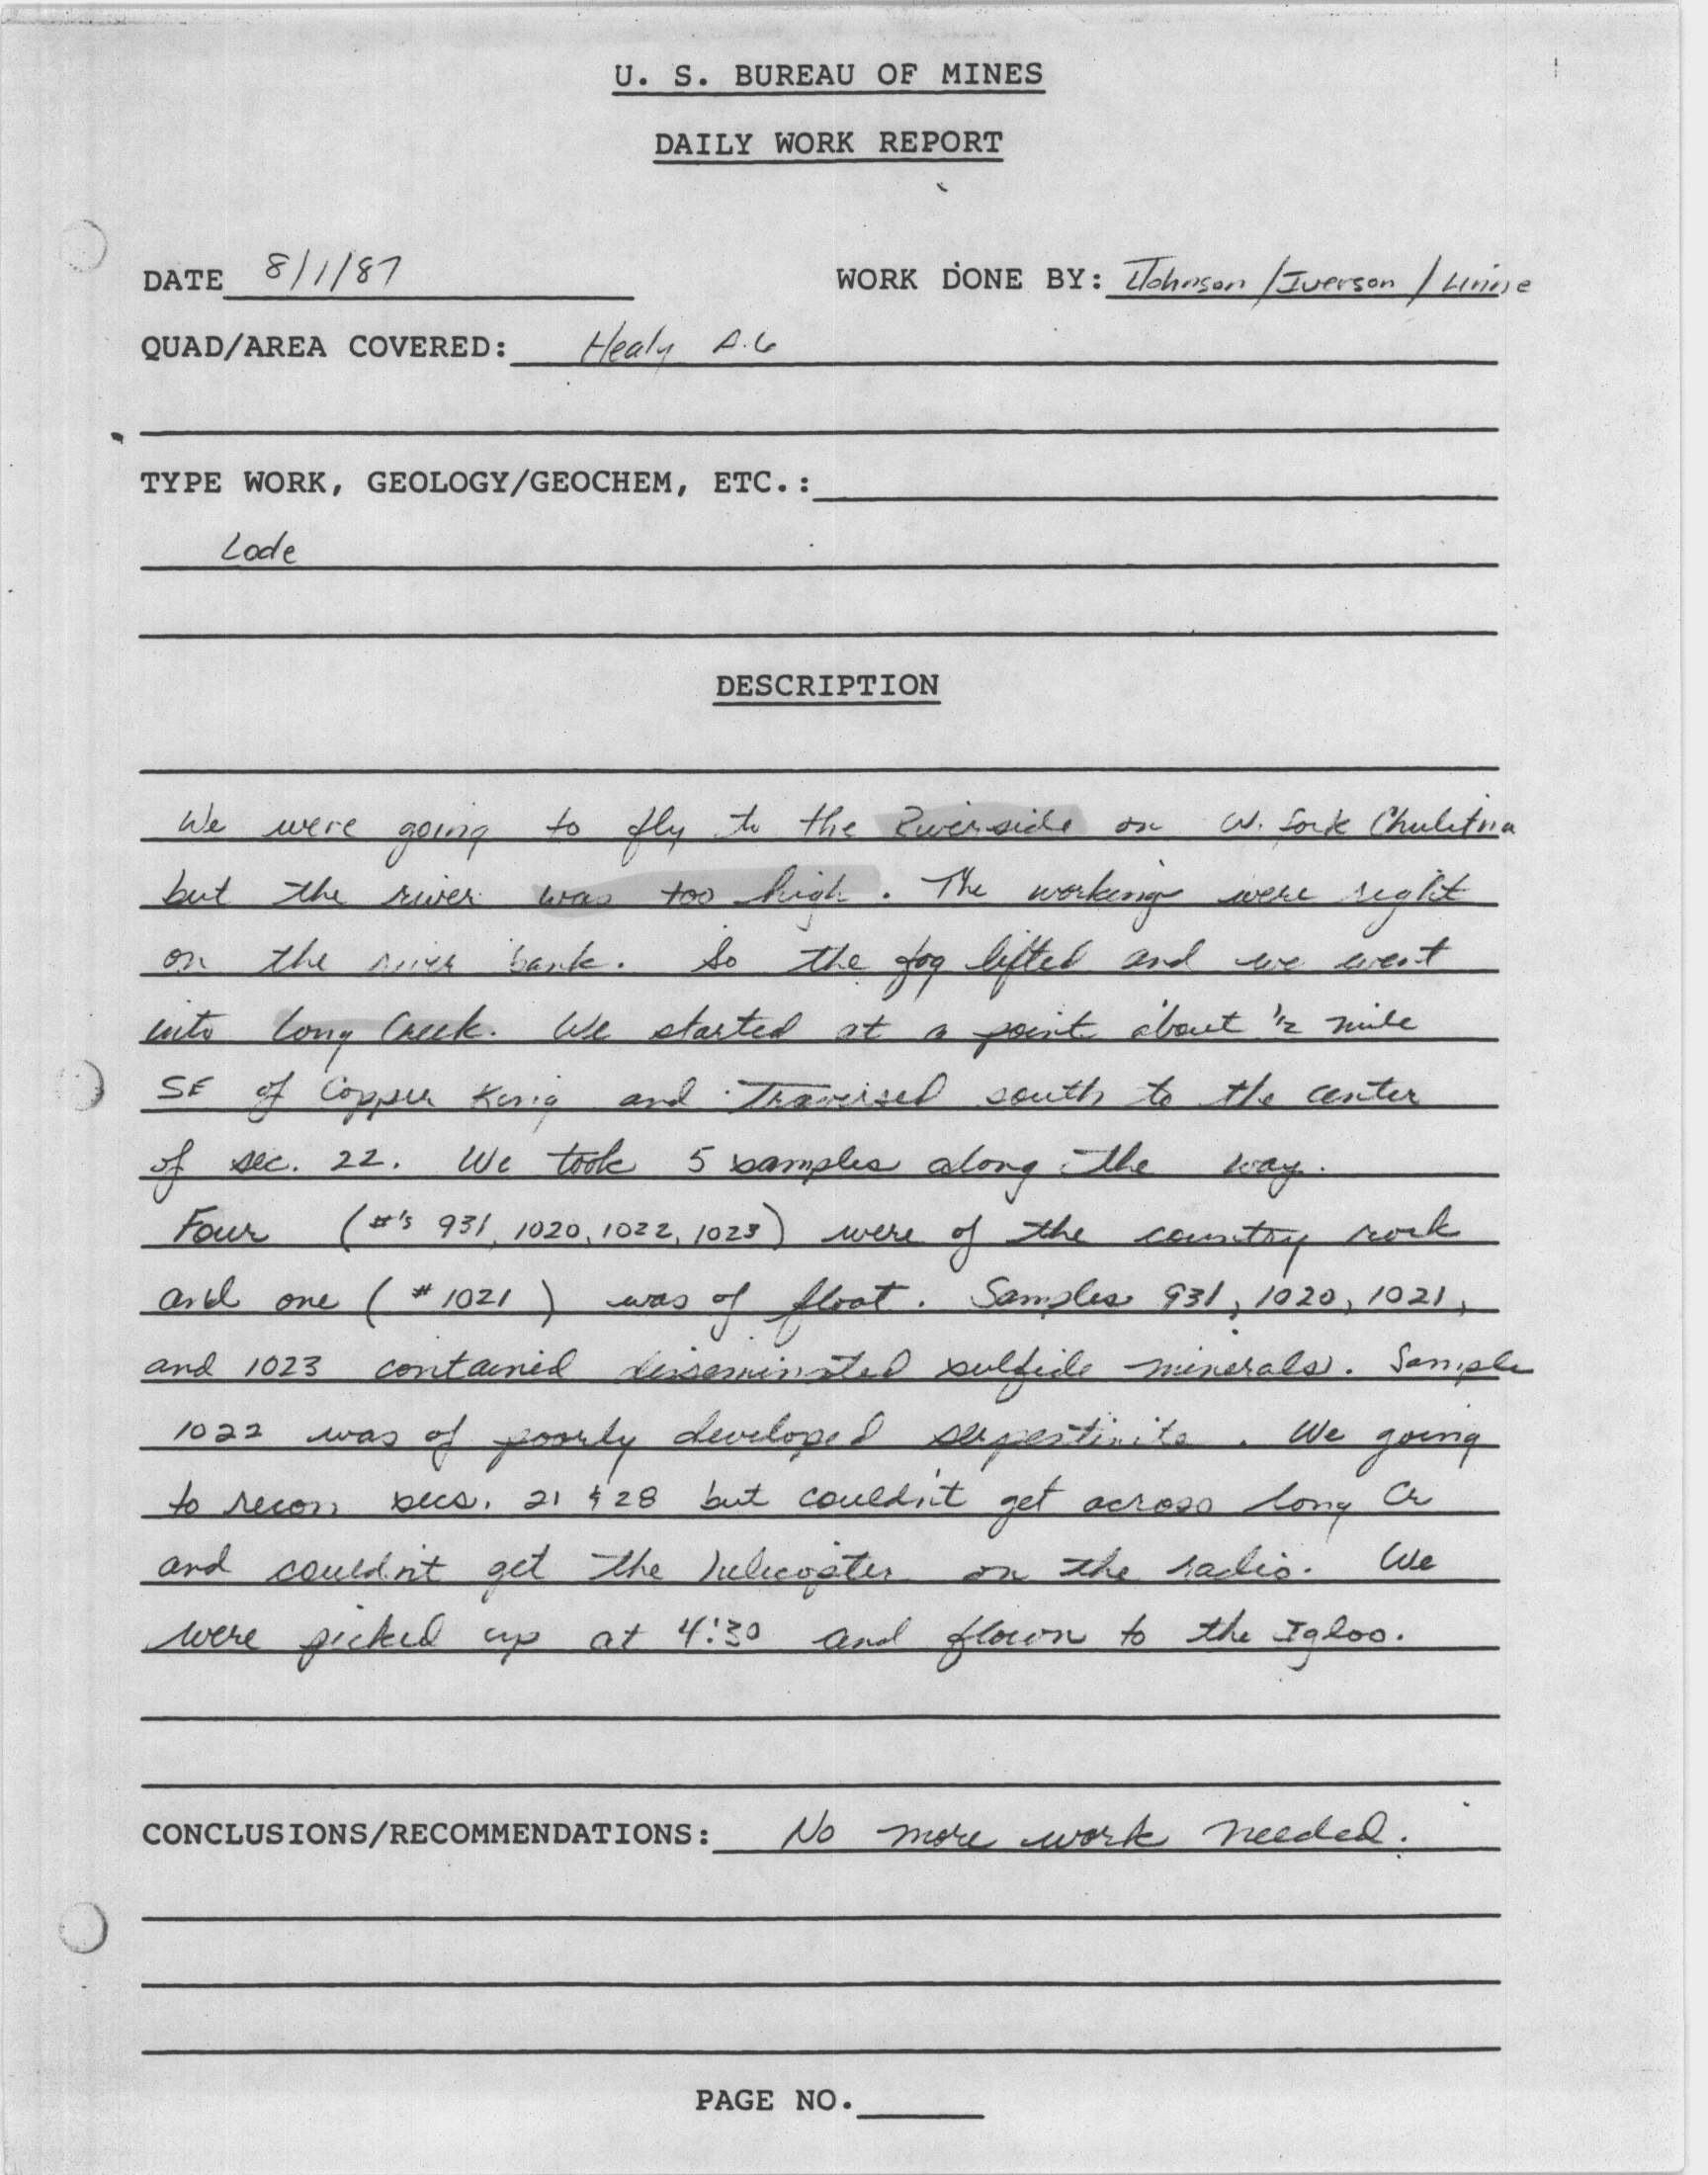 U. S. BUREAU OF MINES
DAILY WORK REPORT
DATE 8/1/87 WORK DONE BY: Johnson / Iverson /
QUAD/AREA COVERED: Healy A.6
TYPE WORK, GEOLOGY/GEOCHEM, ETC.:
Lode
DESCRIPTION
We were going to fly to the Riverside on W. fork Chulitna
but the river was too high. The workings were right
on the river bank. So the fog lifted and we went
into Long Creek. We started at a point about 1/2 mile
SE of Copper King and traversed south to the center
of sec. 22. We took 5 samples along the way.
Four (#'s 931, 1020, 1022, 1023) were of the country rock
and one (#1021) was of float. Samples 931, 1020, 1021,
and 1023 contained disseminated sulfide minerals. Sample
1022 was of poorly developed serpentinite. We going
to recon secs. 21 & 28 but couldn't get across Long Cr
and couldn't get the helicopter on the radio. We
were picked up at 4:30 and flown to the Igloo.
CONCLUSIONS/RECOMMENDATIONS: No more work needed.
PAGE NO.